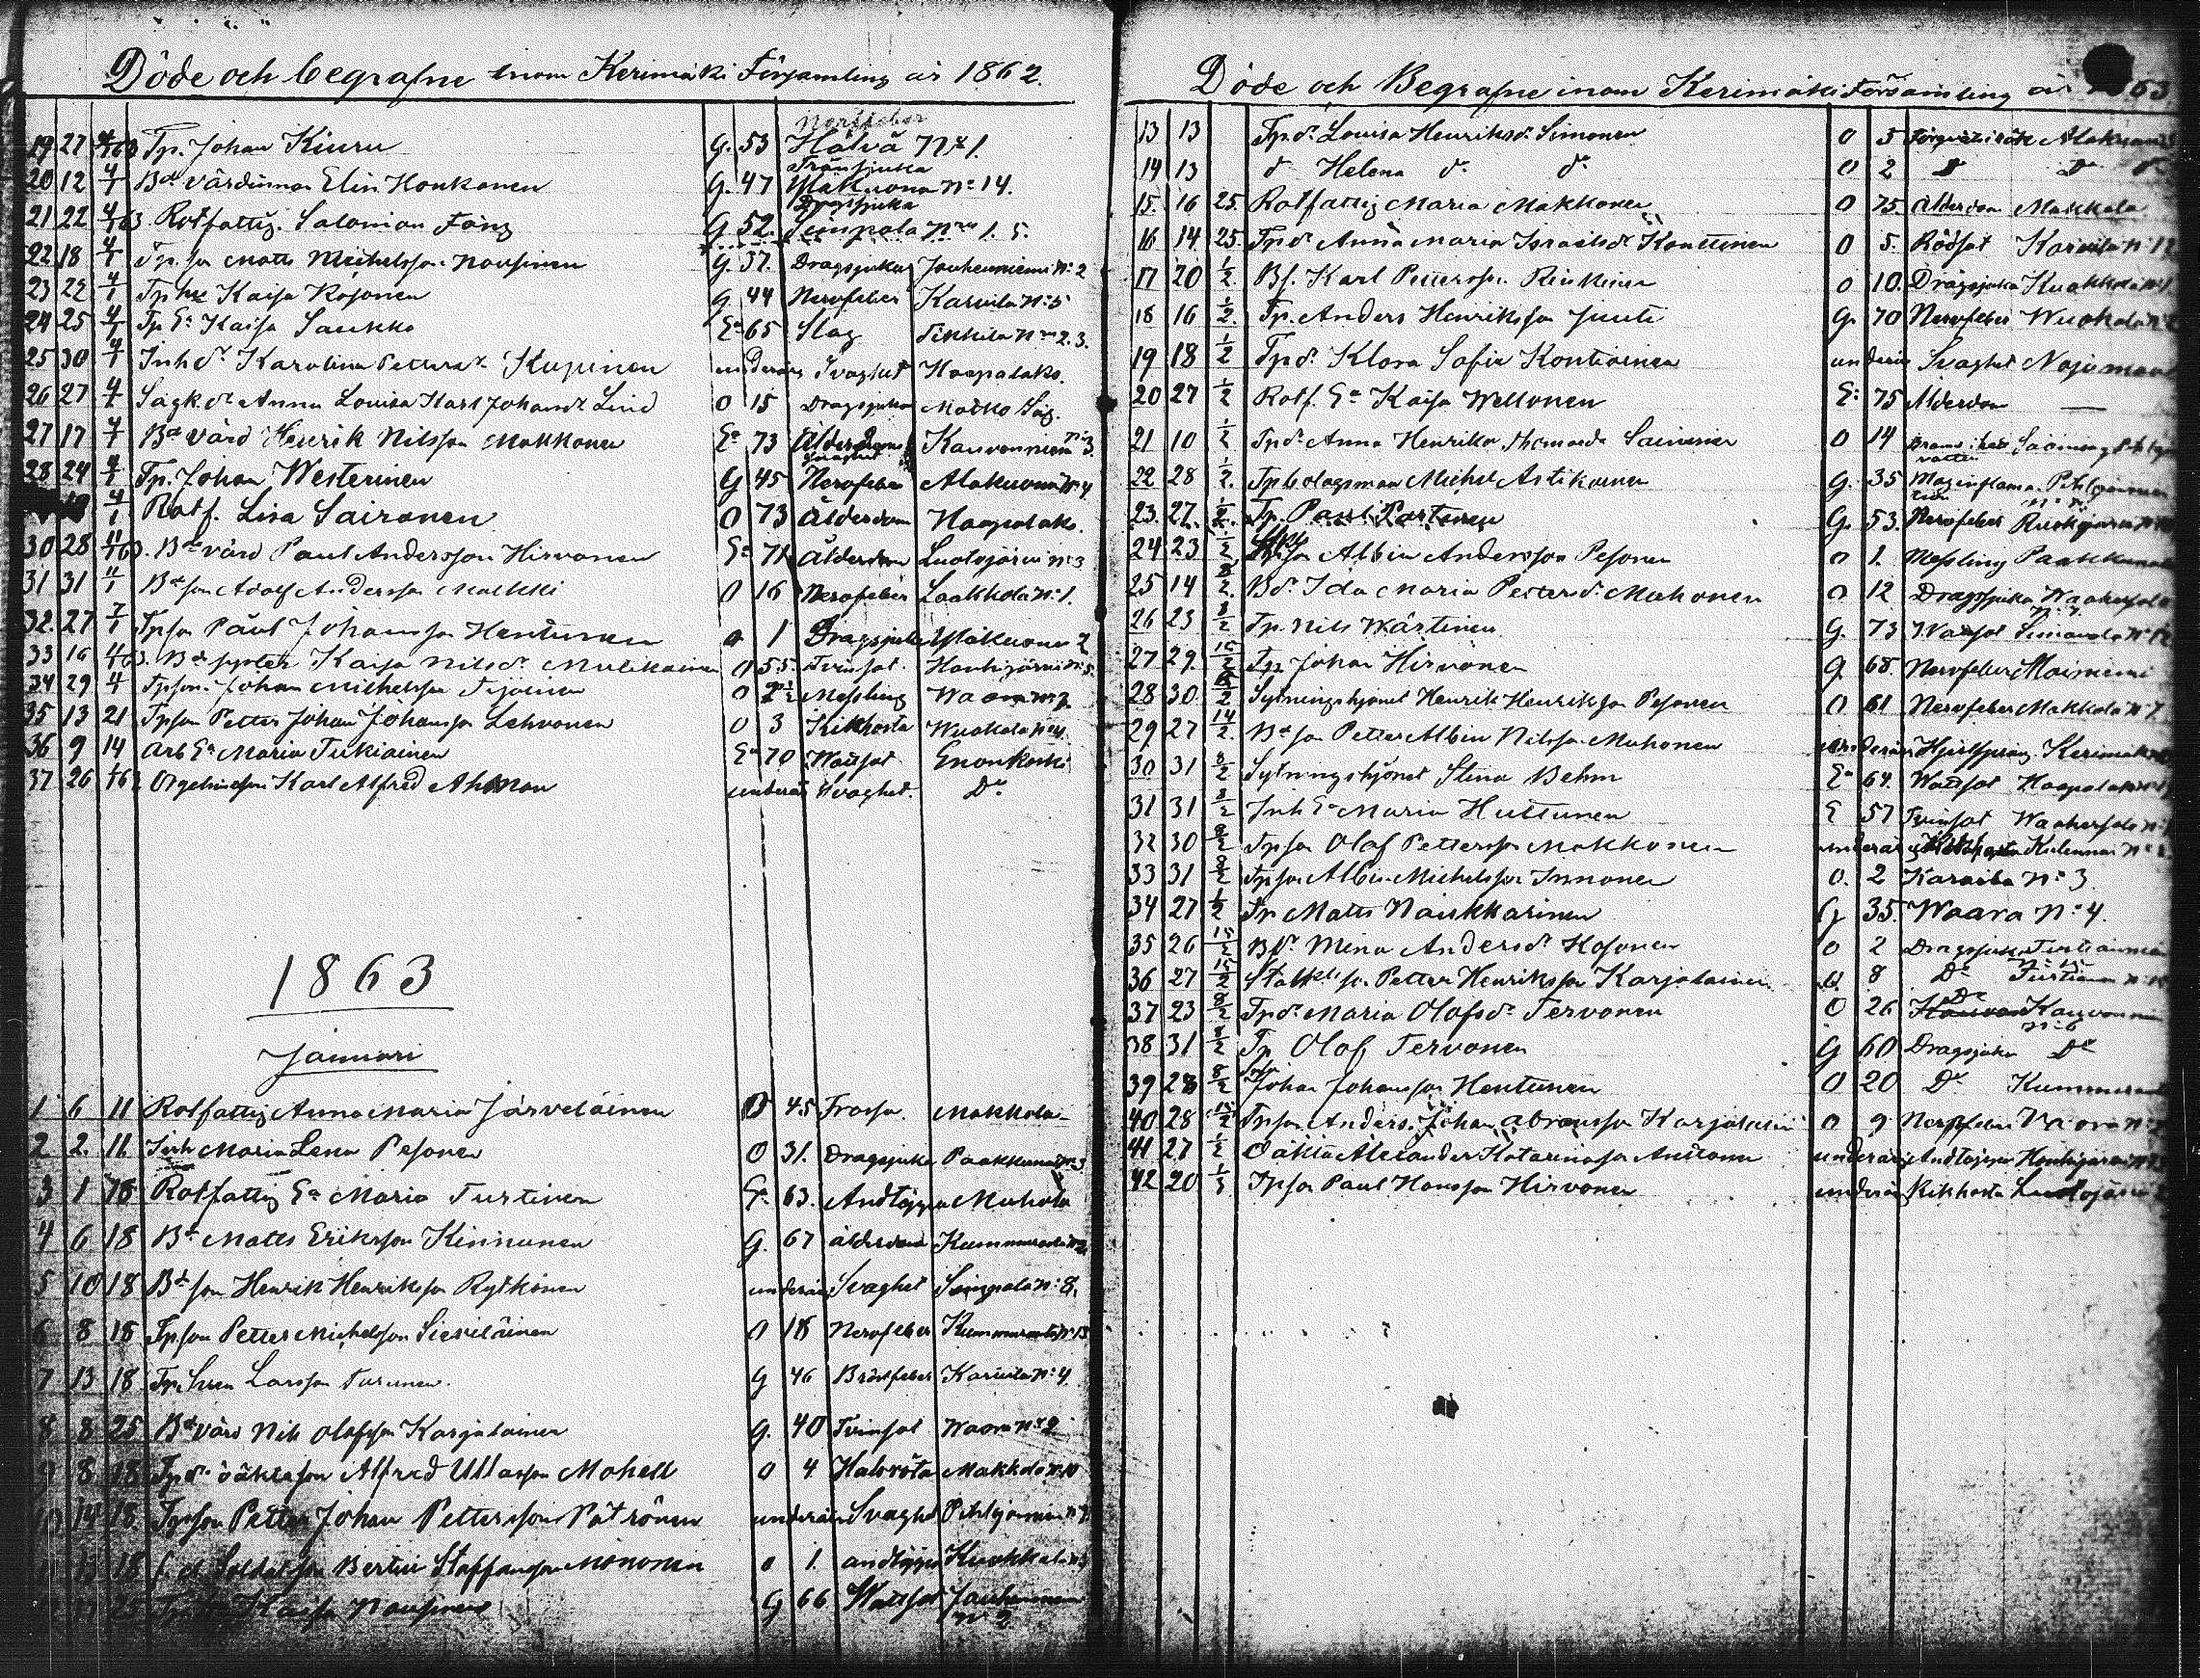 Döde och begrafne inom Kerimäki Församling år 1862.
19 27 4/1 63 Tp. Johan Kiuru G. 53 Nervfeber Hälvä No 1.
20 12 4/1 Bd värdinnan Elin Honkanen G. 47 Tränsjuka Ylakuona No 14.
21 22 4/1 63. Rotfattig. Salomon Fäng G. 52. Dragsjuka Simpala Nro 1. 5.
22 18 4/1 Tp. son Matts Michelsson Nousiainen G. 37. Dragsjuka Jouhenniemi No 2
23 22 4/1 Tp hu Kaisa Kosonen G. 44 Nervfeber Karvila No 5
24 25 4/1 Tp Ea Kaisa Saukko Ea 65 Slag No 2. 3.
25 30 4/1 Inh dr Karolina Pettersdr Kupinen underårig Svaghet Haapalaks.
26 27 4/1 Sagk. dr Anna Lovisa Karl Johansdr Lind O 15 Dragsjuka Matko Säg.
27 17 4/1 Bd värd Henrik Nilsson Makkonen Ea 73 Ålderdoms svaghet Kauvonniemi No 3.
28 24 4/1 Tp. Johan Westerinen G 45 Nervfeber Alakuona No 4
4/1 Rotf. Lisa Sairanen O 73 Ålderdom Haapalaks.
30 28 11/1 63. Bd värd Paul Andersson Hirvonen Ea 71 Ålderdom Luotojärvi No 3
31 31 11/1 Bd son Adolf Andersson Malkki O 16 Nervfeber Laakkola No 1.
32. 27 7/1 Tpson Paul Johansson Hentunen O 1 Dragsjuka Yläkuona 2
33 16 4/1 63. Bd syster Kaisa Nilsdr Mulikainen O 55. Tvinsot. Haukijärvi No 5.
34 29 4/1 Tpson. Johan Michelsson O 2 1/2 Messling Waara No 2
35 13 21 Tpson Petter Johan Johansson Lehvonen O 3 Kikhosta Wuokala No 4
36 9 14 Arb Ea Maria Tukiainen Ea 70 Wattsot Enonkoski
37 26 1/1 63 Orgelnistson Karl Alfred Ahlman underår Svaghet. Do
1863
Januari
1 6 11 Rotfattig Anna Maria Järveläinen O 45 Frossa Makkola
2 2. 11. Inh Maria Lena Pesonen O 31. Dragsjuka Paakkuna No 3.
3 1 18 Rotfattig Ea Maria Turtinen Ea 63. Andtäppa Muhola
4 6 18 Bd Matts Eriksson Kinnunen G. 67 ålderdom Kummuranta No 2
5 10 18 Bd son Henrik Henriksson Rytkönen underårig Svaghet Simpala No 8.
6 8 18 Tpson Petter Michelsson Sieviläinen O 18 Nervfeber Kummuranta No 13
7 13 18 Tp. Sven Larsson Turunen. G 46 Bröstfeber Karvila No 4
8 8 25 Bd värd Nils Olofsson Karjalainen G. 40 Tvinsot Waara No 2
9 8 18 Tp dr oäkta son Alfred Ullasson Mohell O 4 Halsröta Makkola No 10
10 14 18. Tpson Petter Johan Pettersson Patrönen underårig Svaghet Pihlajaniemi No 7
11 13 18 f. d. Soldatson Bertin Staffansson Mononen O 1. andtäppa Kuokkala No 3
25 Kaisa Nousiainen G 66 Wattsot Jouhenniemi No 2
Döde och Begrafne inom Kerimäki Församling år 63
13 13 Tp dr. Lovisa Henriksdr. Simonen O 5 Alakuona
14 13 d Helena dr. dr. O 2 D Do
15. 16 25. Rotfattig Maria Makkonen O 75. Ålderdom Makkola
16 14 25. Tp dr Anna Maria Israelsdr Konttinen O 5. Rödsot Karvila No 12
17 20 1/2. Bf. Karl Pettersson Reinikinen O 10. Dragsjuka Kuokkola No 1
18 16 1/2. Tp. Anders Henriksson Juuti G. 70 Nervfeber Wuokala No 2
19 18 1/2 Tp dr. Klara Sofia Kontiainen underår Svaghet Nojomaa
20 27 1/2 Rotf. Ea Kaisa Wellonen E: 75 Ålderdom —
21 10 1/2 Tp dr. Anna Henrika Thomasdr Saininen O 14 Sääminge Pihlaja
22 28 1/2. Tp bolagsman Michel Astikainen G. 35 Maginflammation Pihlajaniemi
23. 27. 1/2. Tp. Paul Partanen G. 53. Nervfeber Ruokojärvi No
24 23 1/2 son Albin Andersson Pesonen O 1. Messling Paakkuna
25 14 8/2. Bdr. Ida Maria Pettersdr. Muhonen O 12 Dragsjuka Waahersalo No 7
26 23 8/2 Tp. Nils Wärtinen G. 73 Wattsot Simanala No 12
27 29. 15/2 Tp Johan Hirvonen G. 68. Nervfeber Moinniemi
28 30 8/2 Sytningshjonet Henrik Henriksson Pesonen O 61 Nervfeber Makkola No 7
29 27 14/2. Bd son Petter Albin Nilsson Muhonen underårig Hjertsprång Kerimäki
30 31 8/2 Sytningshjonet Stina Behm Ea 64. Wattsot Haapalaks
31 31 8/2 Inh Ea Maria Huttunen E 57 Tvinsot Waahersalo No
32 30 8/2 Tpson Olof Pettersson Makkonen underårig Kikhosta Kulennoi No 2
33 31 8/2 Tpson Albin Michelsson Immonen O. 2 Karvila No 3
34 27 1/2 Tp Matts Naukkarinen G 35. Waara No 4.
35 26 15/2 Bdr. Mina Andersdr Kosonen O 2 Dragsjuka Turtianniemi No 15
36 27 15/2 Statk son Petter Henriksson Karjalainen O 8 Do Turtian No 15
37 23 8/2 Tp dr. Maria Olofsdr Tervonen O 26 Do Kauvonniemi No 6
38 31 8/2 Tp Olof Tervonen G 60 Dragsjuka Do
39 28 8/2 Johan Johansson Hentunen O 20 Do Kummuranta
40 28 15/2 Tpson Anders Johan Abramsson Karjalainen O 9 Nervfeber Waara No 2
41 27 1/2 Oäkta Alexander Katarinason Anttonen underårig Andtäppa Haukijärvi No 13
42 20 1/3 Tpson Paul Hansson Hirvonen underårig Kikhosta Luotojärvi 2